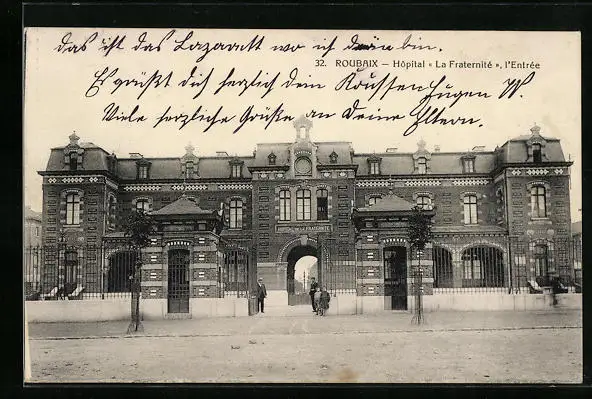 das ist das Lazarett wo ich drin bin.
32. ROUBAIX – Hôpital « La Fraternité », l'Entrée
Es grüßt dich herzlich dein Eugen W.
Viele herzliche Grüße an Deine Eltern.